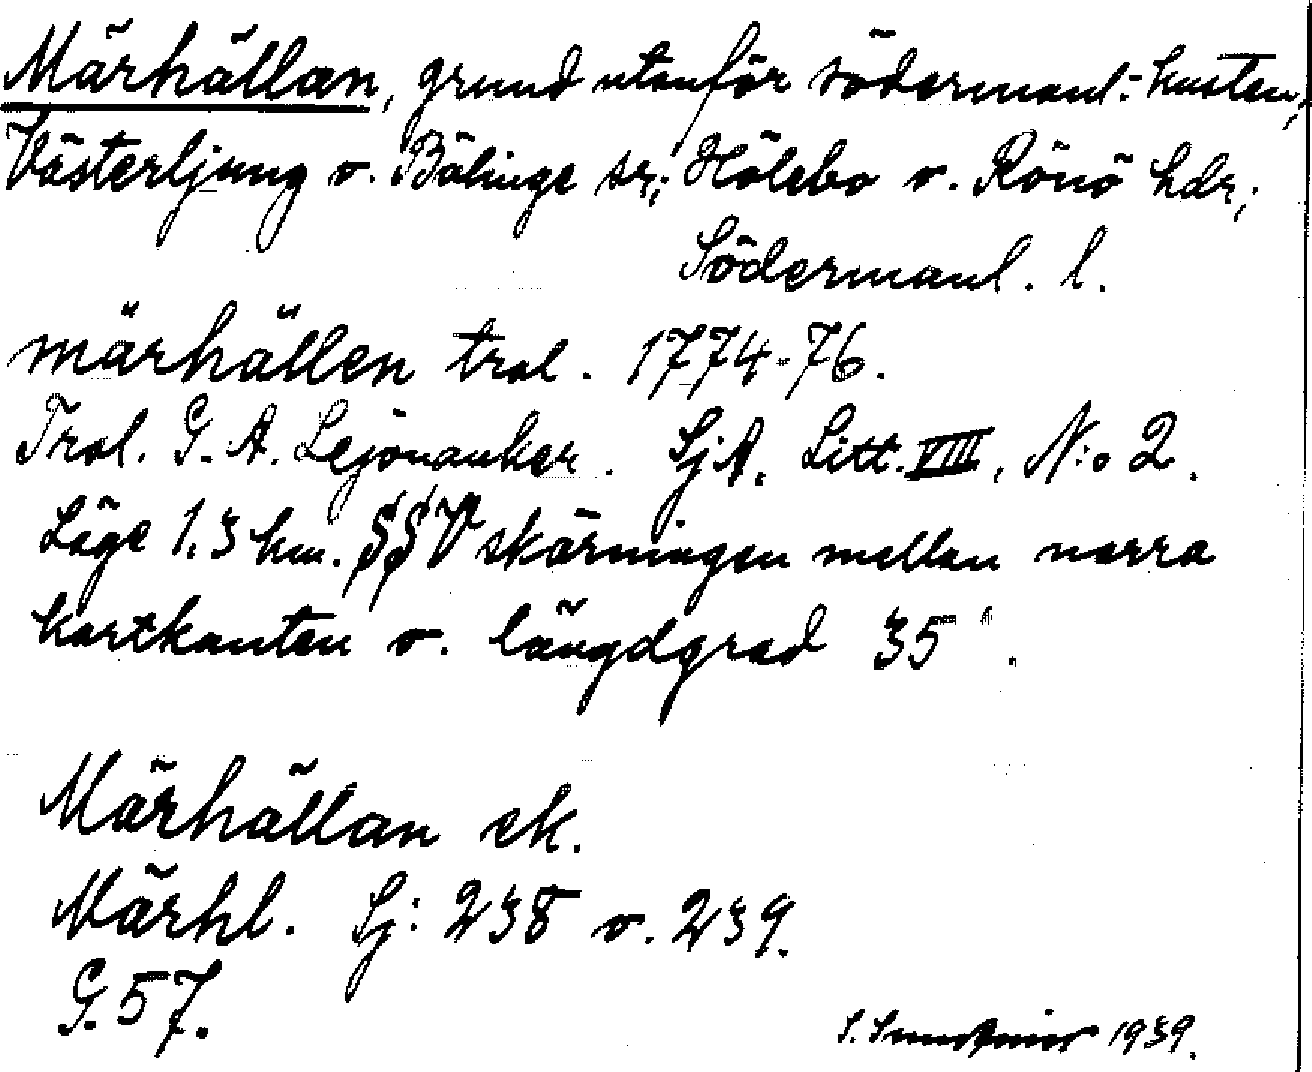 Märhällan, grund utanför södermanl. kusten,
Västerljung o. Bälinge sr; Hölebo o. Rönö hdr,
Södermanl. l.
märhällen trol. 1774-76.
Trol. G. A. Lejonanker. SjA. Litt. VIII, N:o 2.
Läge 1.3 km. §§V skärningen mellan norra
kartkanten o. längdgrad 35'.
Märhällan ek.
Märhl. Sj: 238 o. 239.
G. 57.
S. 1939.